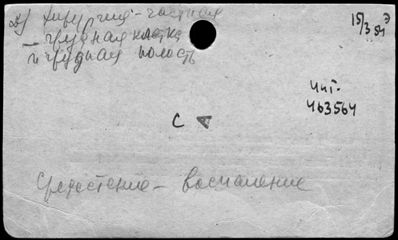 2) хирургия - частная
- грудная клетка
и грудная полость
15/3 54 э
чит.
463564
С А
Средостение - воспаление